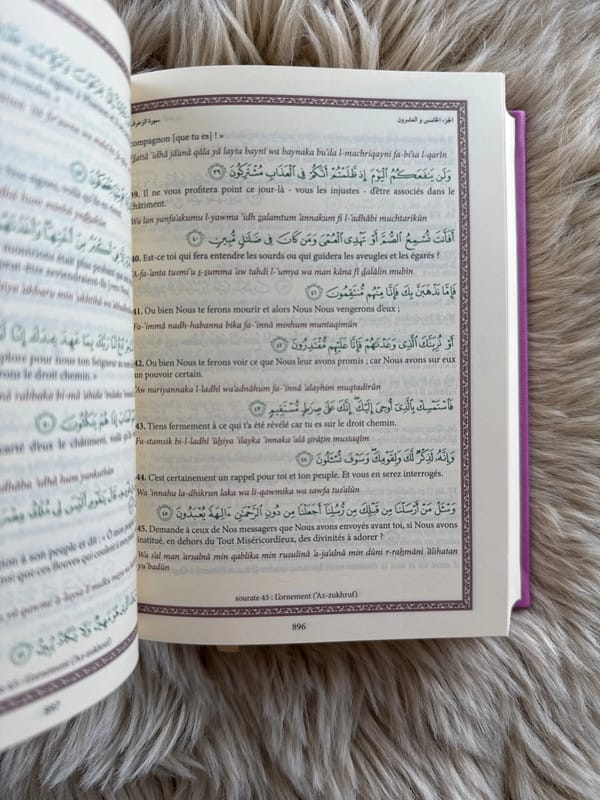 الجزء الخامس و العشرون
سورة الزخرف
compagnon [que tu es] ! »
Ḥattā 'idhā jā'anā qāla yā layta baynī wa baynaka bu'da l-machriqayni fa-bi'sa l-qarīn
وَلَن يَنفَعَكُمُ الْيَوْمَ إِذ ظَّلَمْتُمْ أَنَّكُمْ فِي الْعَذَابِ مُشْتَرِكُونَ ٣٩
39. Il ne vous profitera point ce jour-là - vous les injustes - d'être associés dans le
châtiment.
Wa lan yanfa'akumu l-yawma 'idh ẓalamtum 'annakum fī l-'adhābi muchtarikūn
أَفَأَنتَ تُسْمِعُ الصُّمَّ أَوْ تَهْدِي الْعُمْيَ وَمَن كَانَ فِي ضَلَالٍ مُّبِينٍ ٤٠
40. Est-ce toi qui fera entendre les sourds ou qui guidera les aveugles et les égarés ?
'A-fa-'anta tusmi'u ṣ-ṣumma 'aw tahdī l-'umya wa man kāna fī ḍalālin mubīn
فَإِمَّا نَذْهَبَنَّ بِكَ فَإِنَّا مِنْهُم مُّنتَقِمُونَ ٤١
41. Ou bien Nous te ferons mourir et alors Nous Nous vengerons d'eux ;
Fa-'immā nadh-habanna bika fa-'innā minhum muntaqimūn
أَوْ نُرِيَنَّكَ الَّذِي وَعَدْنَاهُمْ فَإِنَّا عَلَيْهِم مُّقْتَدِرُونَ ٤٢
42. Ou bien Nous te ferons voir ce que Nous leur avons promis ; car Nous avons sur eux
un pouvoir certain.
'Aw nuriyannaka l-ladhī wa'adnāhum fa-'innā 'alayhim muqtadirūn
فَاسْتَمْسِكْ بِالَّذِي أُوحِيَ إِلَيْكَ إِنَّكَ عَلَى صِرَاطٍ مُّسْتَقِيمٍ ٤٣
43. Tiens fermement à ce qui t'a été révélé car tu es sur le droit chemin.
Fa-stamsik bi-l-ladhī 'ūḥiya 'ilayka 'innaka 'alā ṣirāṭin mustaqīm
وَإِنَّهُ لَذِكْرٌ لَّكَ وَلِقَوْمِكَ وَسَوْفَ تُسْأَلُونَ ٤٤
44. C'est certainement un rappel pour toi et ton peuple. Et vous en serez interrogés.
Wa 'innahu la-dhikrun laka wa li-qawmika wa sawfa tus'alūn
وَسْئَلْ مَنْ أَرْسَلْنَا مِن قَبْلِكَ مِن رُّسُلِنَا أَجَعَلْنَا مِن دُونِ الرَّحْمَٰنِ آلِهَةً يُعْبَدُونَ ٤٥
45. Demande à ceux de Nos messagers que Nous avons envoyés avant toi, si Nous avons
institué, en dehors du Tout Miséricordieux, des divinités à adorer ?
Wa s'al man 'arsalnā min qablika min rusulinā 'a-ja'alnā min dūni r-raḥmāni 'ālihatan
yu'badūn
sourate 43 : L'ornement ('Az-zukhruf)
896
le droit chemin. »
tion à son peuple et dit : « Ô mon
que ces fleuves qui coulent à mes
: L'ornement ('Az-zukhruf)
897